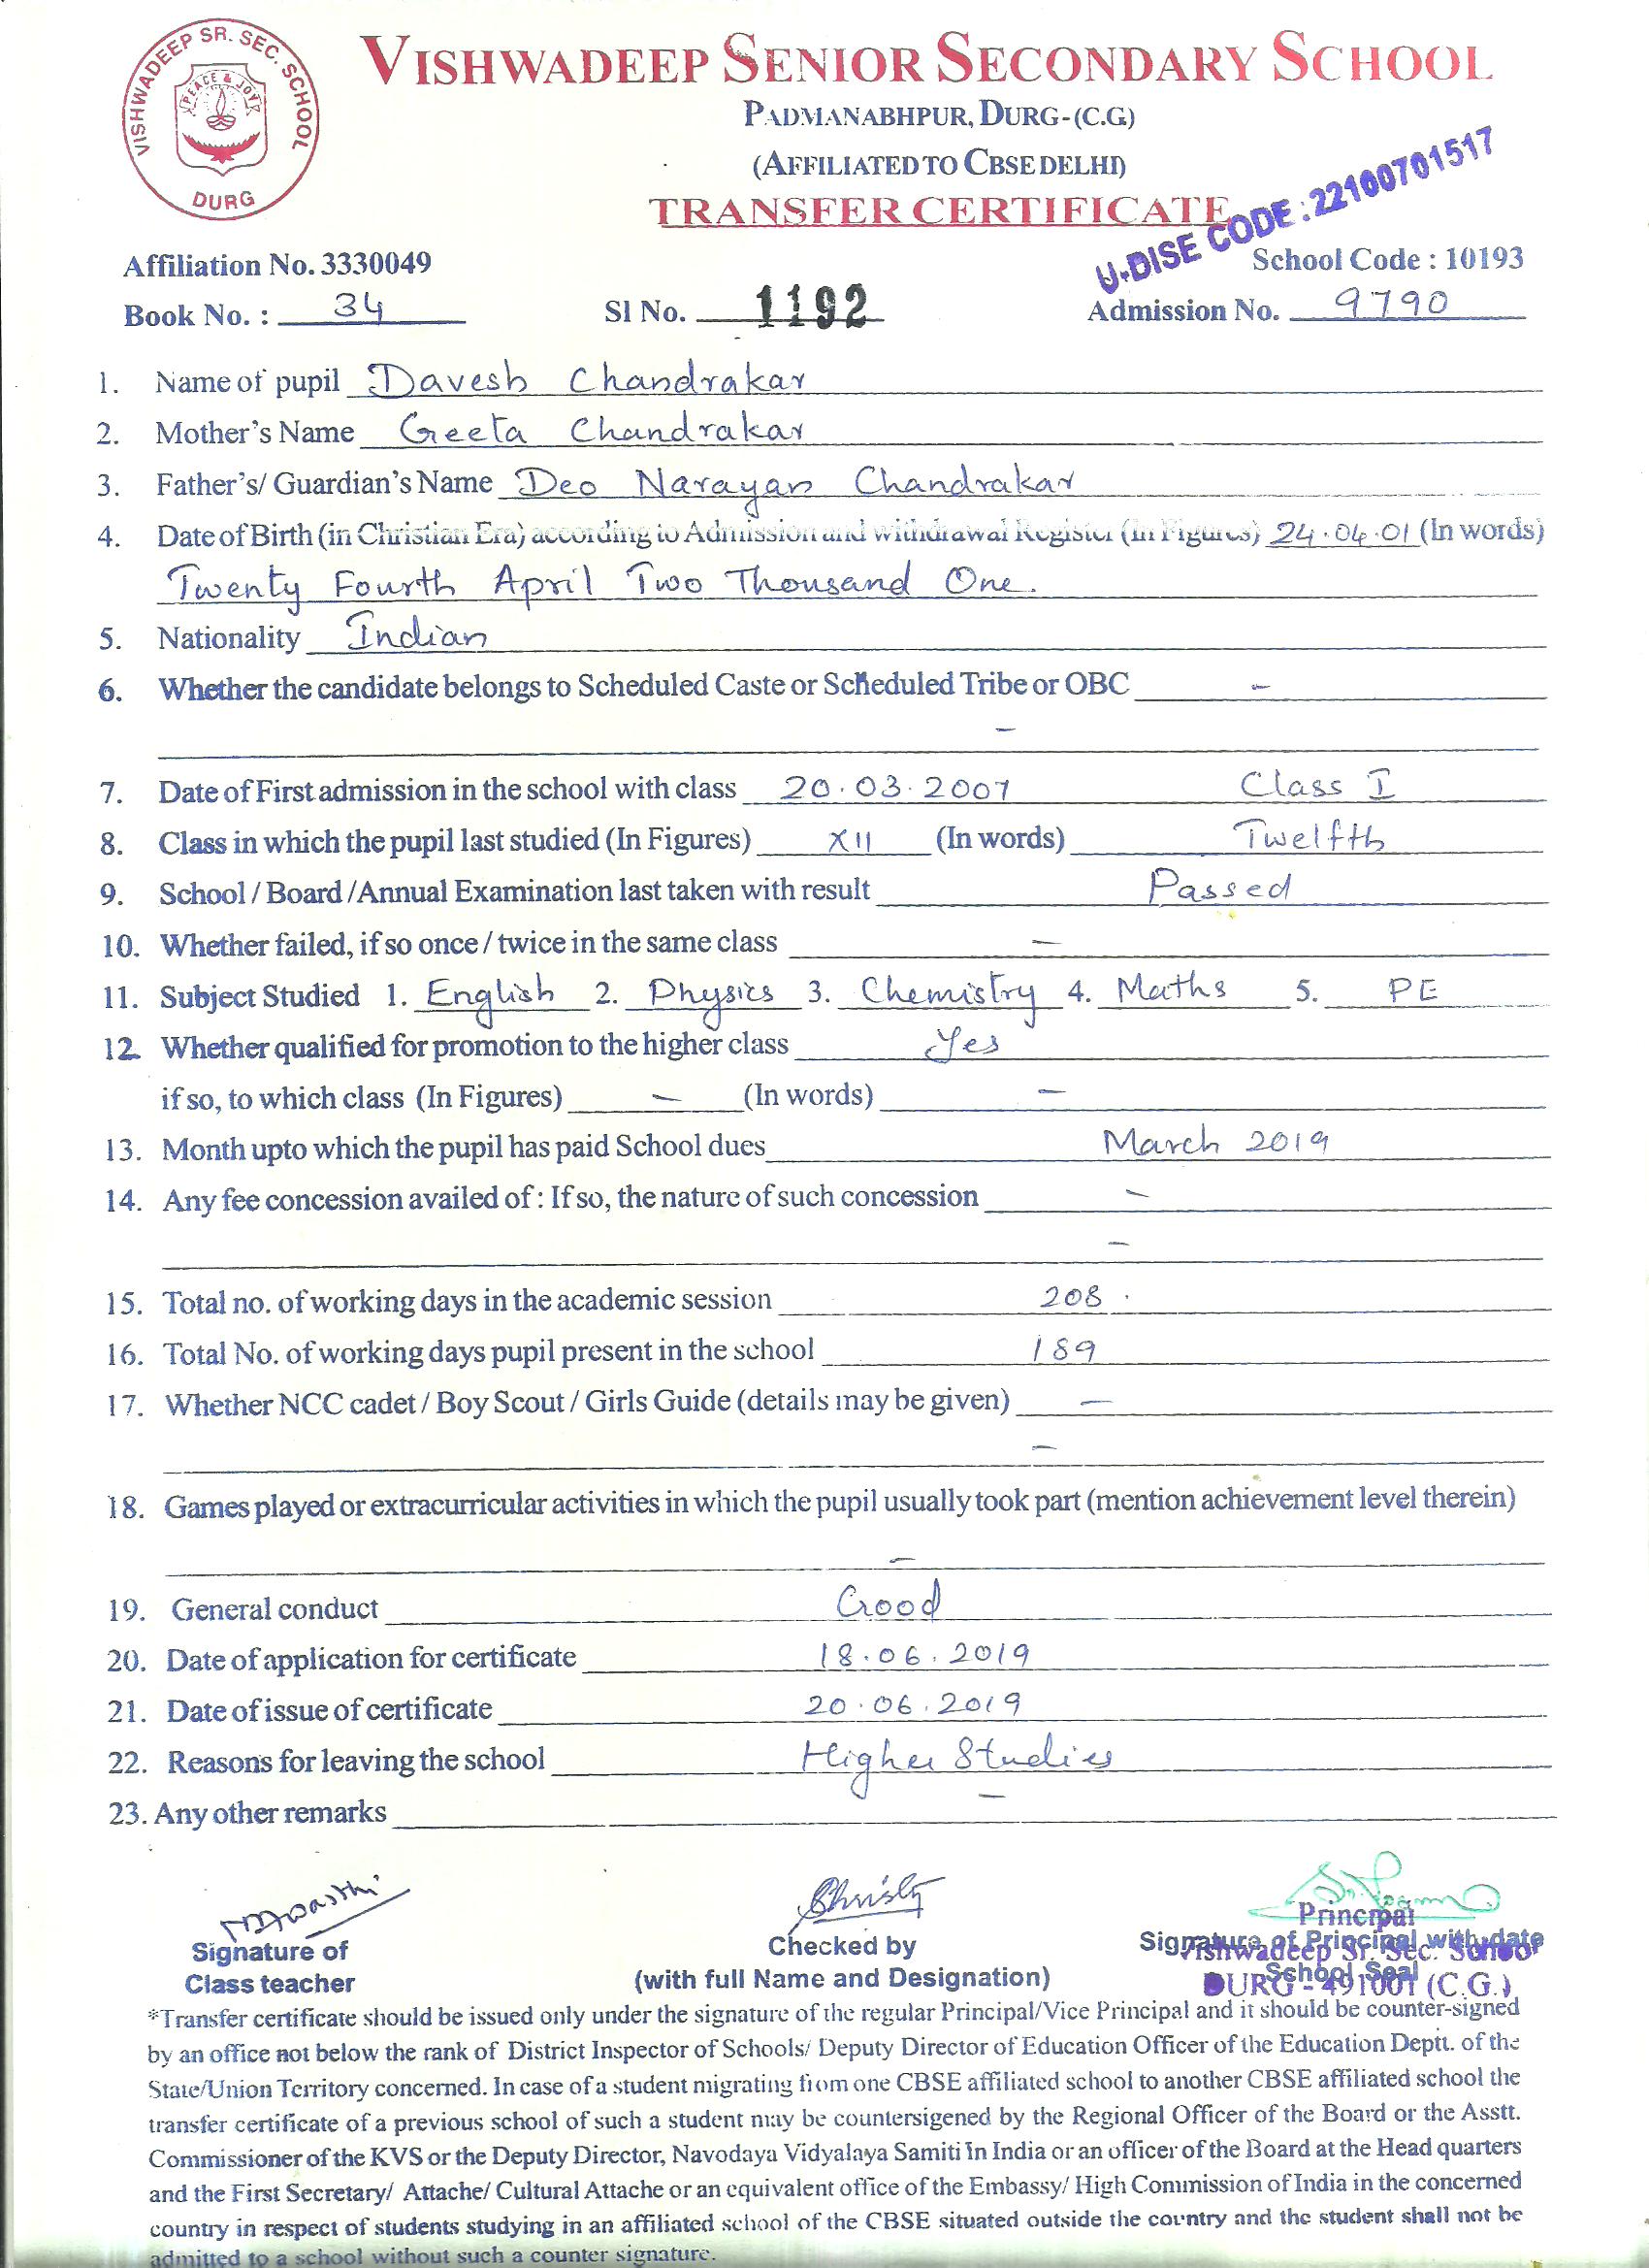 VISHWADEEP SR. SEC. SCHOOL
PEACE & JOY
DURG
VISHWADEEP SENIOR SECONDARY SCHOOL
PADMANABHPUR, DURG-(C.G.)
(AFFILIATED TO CBSE DELHI)
TRANSFER CERTIFICATE
U-DISE CODE : 22100701517
Affiliation No. 3330049 School Code : 10193
Book No. : 34 Sl No. 1192 Admission No. 9790
1. Name of pupil Davesh Chandrakar
2. Mother's Name Geeta Chandrakar
3. Father's/ Guardian's Name Deo Narayan Chandrakar
4. Date of Birth (in Christian Era) according to Admission and withdrawal Register (In Figures) 24.04.01 (In words)
Twenty Fourth April Two Thousand One.
5. Nationality Indian
6. Whether the candidate belongs to Scheduled Caste or Scheduled Tribe or OBC –
–
7. Date of First admission in the school with class 20.03.2007 Class I
8. Class in which the pupil last studied (In Figures) XII (In words) Twelfth
9. School / Board /Annual Examination last taken with result Passed
10. Whether failed, if so once / twice in the same class –
11. Subject Studied 1. English 2. Physics 3. Chemistry 4. Maths 5. PE
12. Whether qualified for promotion to the higher class Yes
if so, to which class (In Figures) – (In words) –
13. Month upto which the pupil has paid School dues March 2019
14. Any fee concession availed of : If so, the nature of such concession –
–
15. Total no. of working days in the academic session 208.
16. Total No. of working days pupil present in the school 189
17. Whether NCC cadet / Boy Scout / Girls Guide (details may be given) –
–
18. Games played or extracurricular activities in which the pupil usually took part (mention achievement level therein)
–
19. General conduct Good
20. Date of application for certificate 18.06.2019
21. Date of issue of certificate 20.06.2019
22. Reasons for leaving the school Higher Studies
23. Any other remarks –
Principal
Signature of Checked by Signature of Principal with date
Vishwadeep Sr. Sec. School
Class teacher (with full Name and Designation) School Seal
DURG - 491001 (C.G.)
*Transfer certificate should be issued only under the signature of the regular Principal/Vice Principal and it should be counter-signed
by an office not below the rank of District Inspector of Schools/ Deputy Director of Education Officer of the Education Deptt. of the
State/Union Territory concerned. In case of a student migrating from one CBSE affiliated school to another CBSE affiliated school the
transfer certificate of a previous school of such a student may be countersigened by the Regional Officer of the Board or the Asstt.
Commissioner of the KVS or the Deputy Director, Navodaya Vidyalaya Samiti In India or an officer of the Board at the Head quarters
and the First Secretary/ Attache/ Cultural Attache or an equivalent office of the Embassy/ High Commission of India in the concerned
country in respect of students studying in an affiliated school of the CBSE situated outside the country and the student shall not be
admitted to a school without such a counter signature.